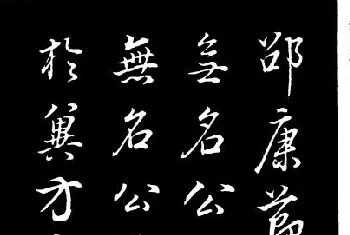 邵康節
無名公
無名公
於冀方